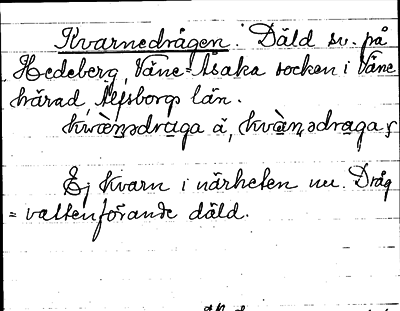 Kvarnedrågen. Däld sv. på
Hedeberg, Väne-Åsaka socken i Väne
härad, Älfsborgs län.
kvàṇədraga ä, kvàṇədraga
Ej kvarn i närheten nu. Dråg
= vattenförande däld.